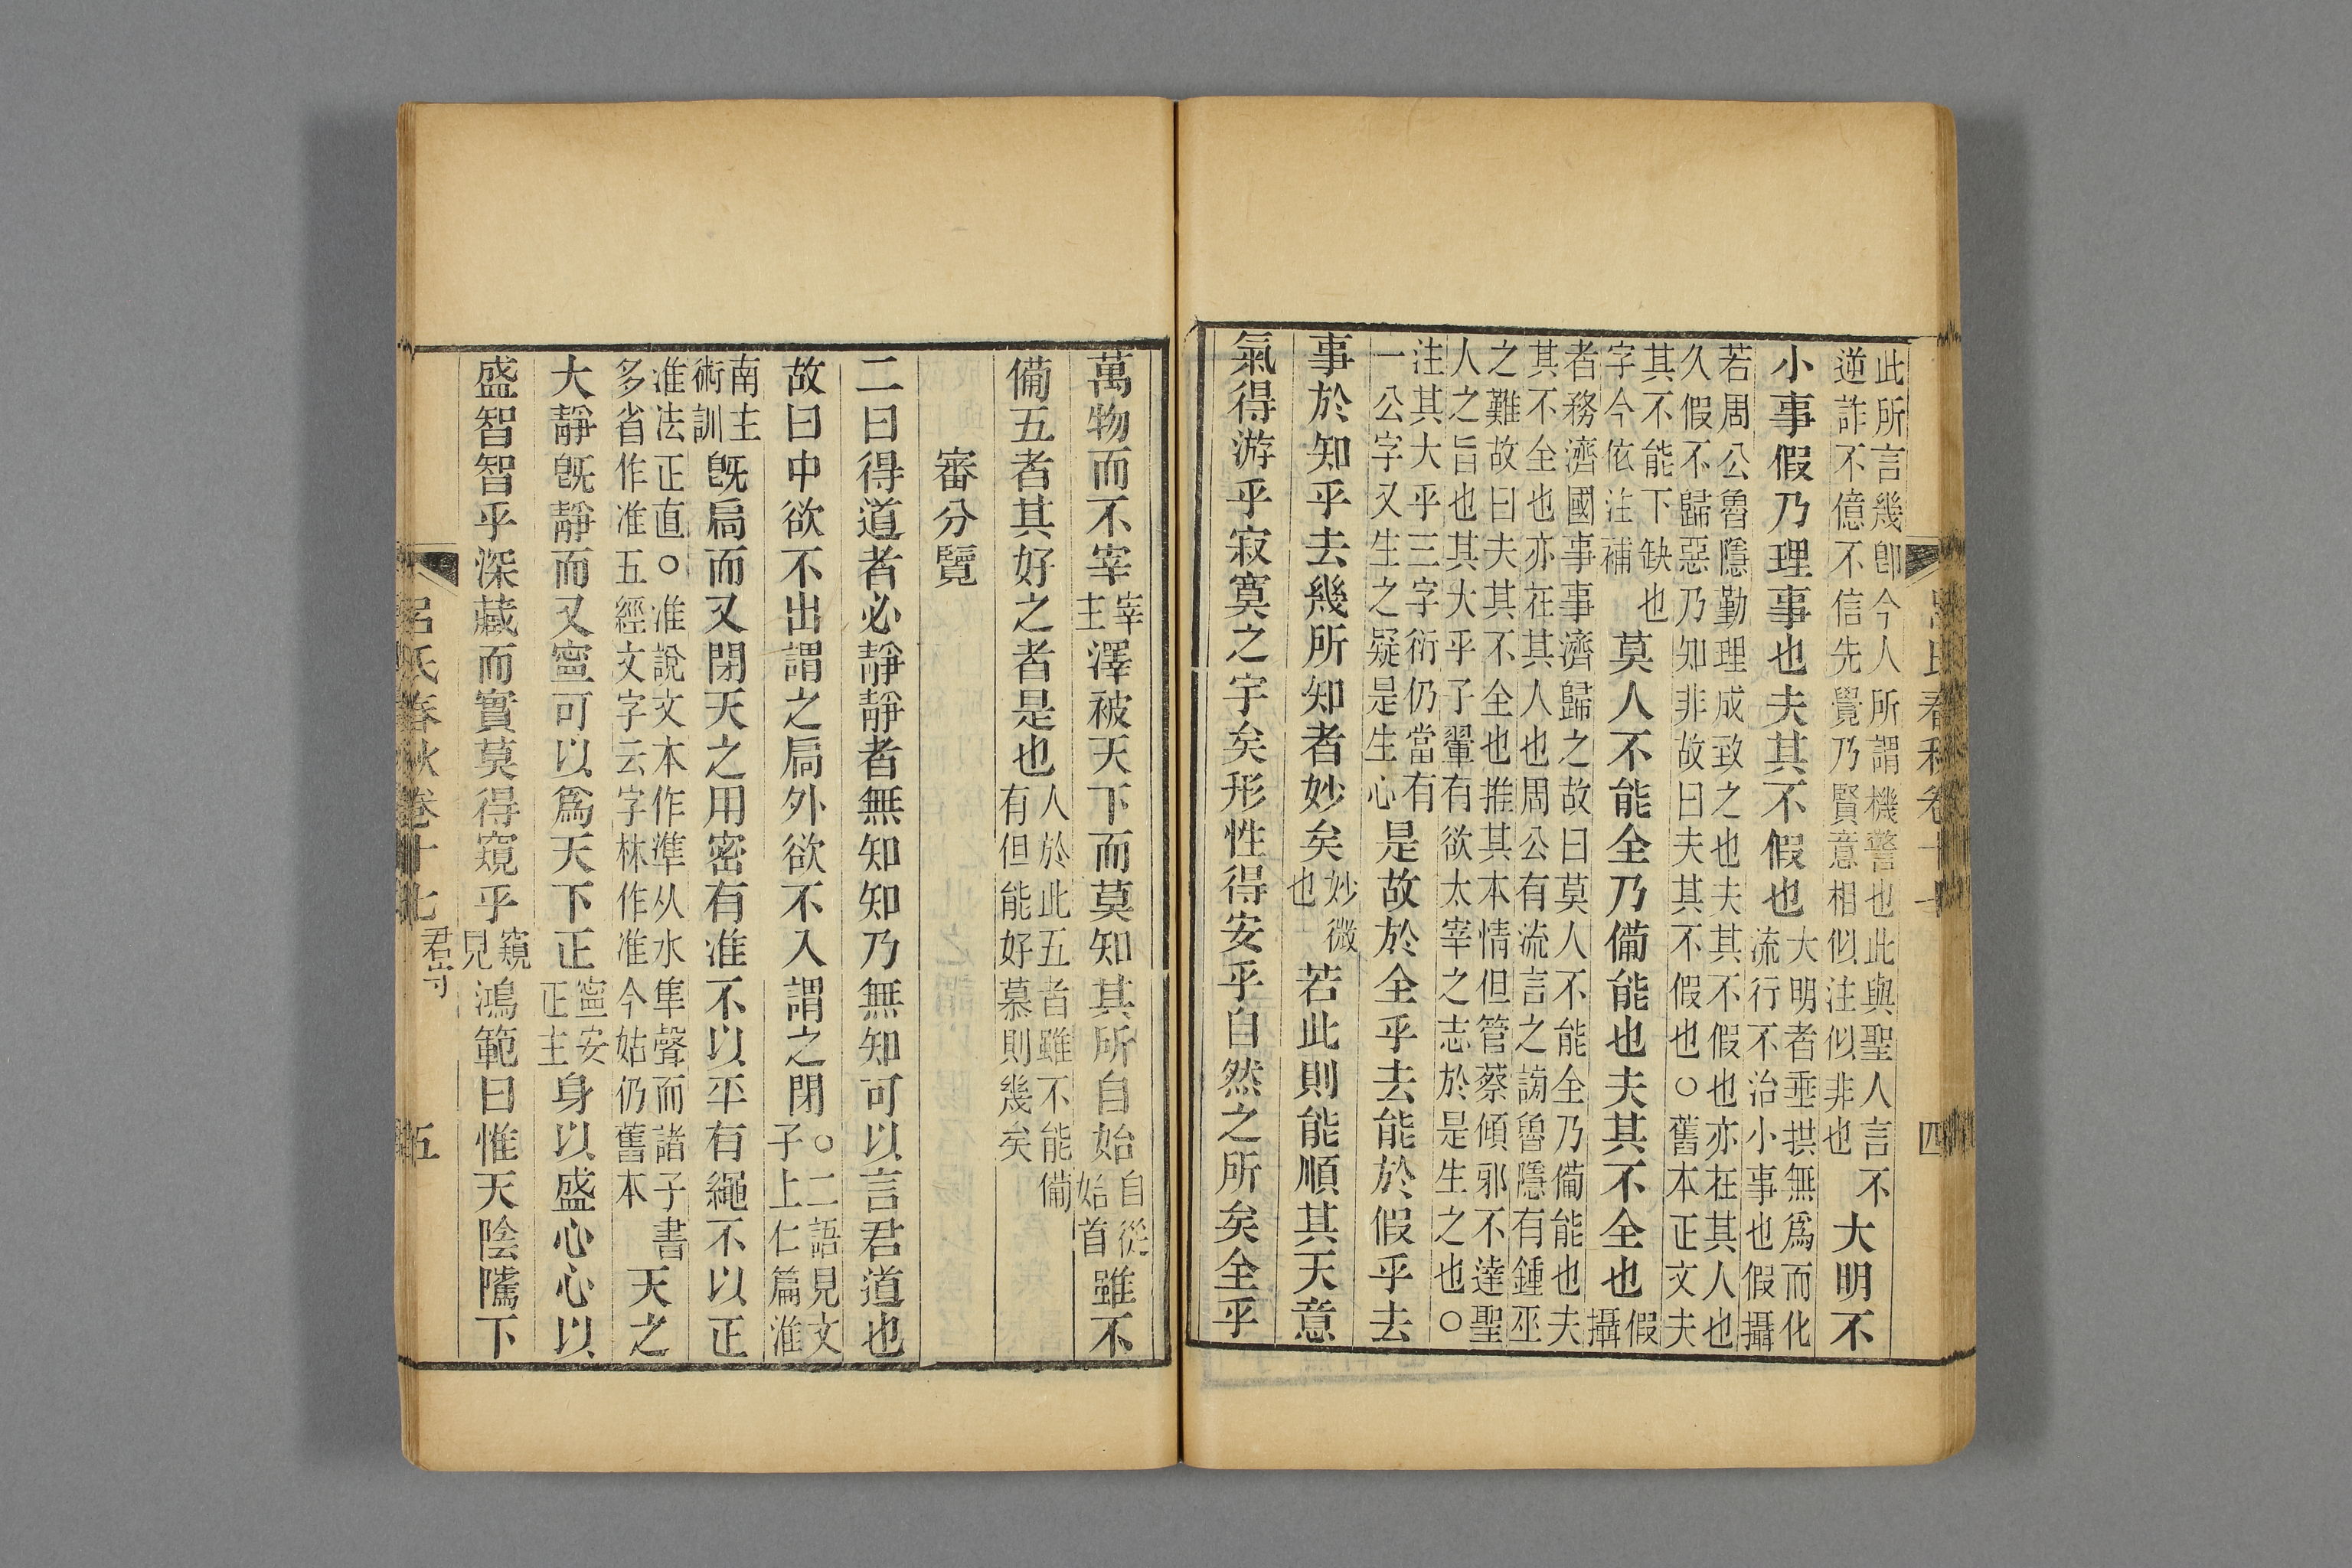 呂氏春秋卷十七 四
此所言幾卽今人所謂機警也此與聖人言不逆詐不億不信先覺乃賢意相似注似非也大明不
小事假乃理事也夫其不假也大明者垂拱無爲而化流行不治小事也假攝
若周公魯隱勤理成致之也夫其不假也亦在其人也久假不歸惡乃知非故曰夫其不假也○舊本正文夫
其不能下缺也字今依注補莫人不能全乃備能也夫其不全也假攝
者務濟國事事濟歸之故曰莫人不能全乃備能也夫其不全也亦在其人也周公有流言之謗魯隱有鍾巫
之難故曰夫其不全也推其本情但管蔡傾邪不達聖人之旨也其大乎子翬有欲太宰之志於是生之也○
注其大乎三字衍仍當有一公字又生之疑是生心是故於全乎去能於假乎去
事於知乎去幾所知者妙矣妙微也若此則能順其天意
氣得游乎寂寞之宇矣形性得安乎自然之所矣全乎
萬物而不宰宰主澤被天下而莫知其所自始自從始首雖不
備五者其好之者是也人於此五者雖不能備有但能好慕則幾矣
審分覽
二曰得道者必靜靜者無知知乃無知可以言君道也
故曰中欲不出謂之扃外欲不入謂之閉○二語見文子上仁篇淮
南主術訓旣扃而又閉天之用密有准不以平有繩不以正
准法正直○准說文本作準从水隼聲而諸子書多省作准五經文字云字林作准今姑仍舊本天之
大靜旣靜而又寧可以爲天下正寧安正主身以盛心心以
盛智智乎深藏而實莫得窺乎窺見鴻範曰惟天陰騭下
呂氏春秋卷十七 君守 五